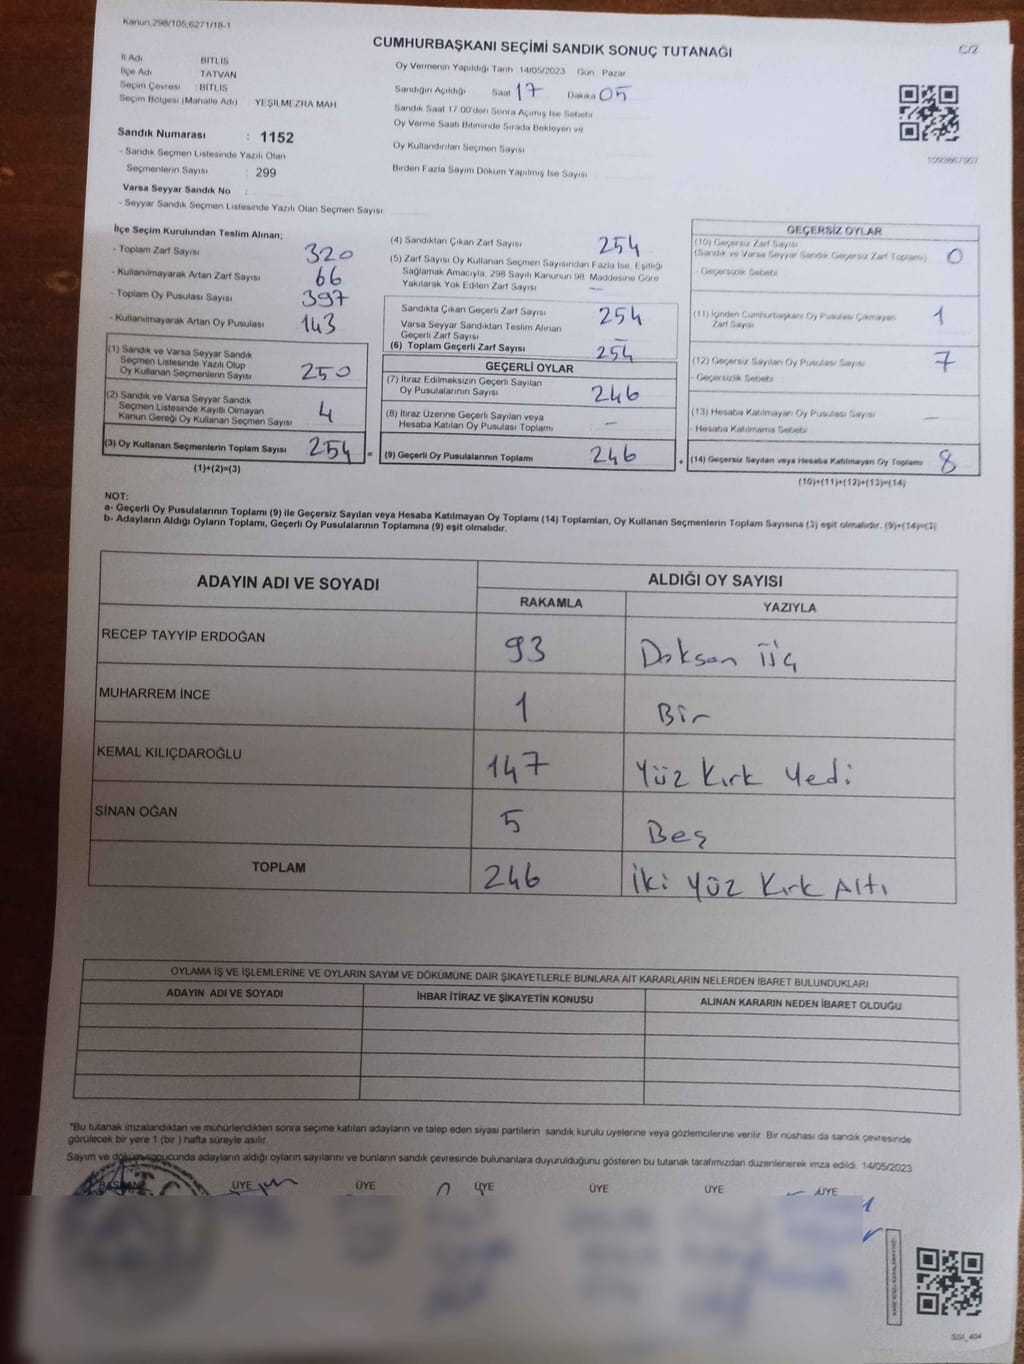 Kanun.298/105;6271/18-1
C/2
CUMHURBAŞKANI SEÇİMİ SANDIK SONUÇ TUTANAĞI
İl Adı : BİTLİS
İlçe Adı : TATVAN
Seçim Çevresi : BİTLİS
Seçim Bölgesi (Mahalle Adı) : YEŞİLMEZRA MAH
Sandık Numarası : 1152
- Sandık Seçmen Listesinde Yazılı Olan
Seçmenlerin Sayısı : 299
Varsa Seyyar Sandık No :
- Seyyar Sandık Seçmen Listesinde Yazılı Olan Seçmen Sayısı
Oy Vermenin Yapıldığı Tarih 14/05/2023 Gün Pazar
Sandığın Açıldığı Saat 17 Dakika 05
Sandık Saat 17:00'den Sonra Açımış İse Sebebi
Oy Verme Saati Bitiminde Sırada Bekleyen ve
Oy Kullandırılan Seçmen Sayısı
Birden Fazla Sayım Döküm Yapılmış İse Sayısı
1093867907
İlçe Seçim Kurulundan Teslim Alınan;
- Toplam Zarf Sayısı 320
- Kullanılmayarak Artan Zarf Sayısı 66
- Toplam Oy Pusulası Sayısı 397
- Kullanılmayarak Artan Oy Pusulası 143
(1) Sandık ve Varsa Seyyar Sandık
Seçmen Listesinde Yazılı Olup
Oy Kullanan Seçmenlerin Sayısı 250
(2) Sandık ve Varsa Seyyar Sandık
Seçmen Listesinde Kayıtlı Olmayan
Kanun Gereği Oy Kullanan Seçmen Sayısı 4
(3) Oy Kullanan Seçmenlerin Toplam Sayısı 254 =
(1)+(2)=(3)
(4) Sandıktan Çıkan Zarf Sayısı 254
(5) Zarf Sayısı Oy Kullanan Seçmen Sayısından Fazla İse, Eşitliği
Sağlamak Amacıyla, 298 Sayılı Kanunun 98. Maddesine Göre
Yakılarak Yok Edilen Zarf Sayısı —
Sandıkta Çıkan Geçerli Zarf Sayısı 254
Varsa Seyyar Sandıktan Teslim Alınan
Geçerli Zarf Sayısı —
(6) Toplam Geçerli Zarf Sayısı 254
GEÇERLİ OYLAR
(7) İtiraz Edilmeksizin Geçerli Sayılan
Oy Pusulalarının Sayısı 246
(8) İtiraz Üzerine Geçerli Sayılan veya
Hesaba Katılan Oy Pusulası Toplamı —
(9) Geçerli Oy Pusulalarının Toplamı 246 +
GEÇERSİZ OYLAR
(10) Geçersiz Zarf Sayısı
(Sandık ve Varsa Seyyar Sandık Geçersiz Zarf Toplamı) 0
- Geçersizlik Sebebi
(11) İçinden Cumhurbaşkanı Oy Pusulası Çıkmayan
Zarf Sayısı 1
(12) Geçersiz Sayılan Oy Pusulası Sayısı 7
- Geçersizlik Sebebi
(13) Hesaba Katılmayan Oy Pusulası Sayısı —
- Hesaba Katılmama Sebebi
(14) Geçersiz Sayılan veya Hesaba Katılmayan Oy Toplamı 8
(10)+(11)+(12)+(13)=(14)
NOT:
a- Geçerli Oy Pusulalarının Toplamı (9) ile Geçersiz Sayılan veya Hesaba Katılmayan Oy Toplamı (14) Toplamları, Oy Kullanan Seçmenlerin Toplam Sayısına (3) eşit olmalıdır. (9)+(14)=(3)
b- Adayların Aldığı Oyların Toplamı, Geçerli Oy Pusulalarının Toplamına (9) eşit olmalıdır.
ADAYIN ADI VE SOYADI
ALDIĞI OY SAYISI
RAKAMLA YAZIYLA
RECEP TAYYİP ERDOĞAN 93 Doksan üç
MUHARREM İNCE 1 Bir
KEMAL KILIÇDAROĞLU 147 Yüz Kırk Yedi
SİNAN OĞAN 5 Beş
TOPLAM 246 İki Yüz Kırk Altı
OYLAMA İŞ VE İŞLEMLERİNE VE OYLARIN SAYIM VE DÖKÜMÜNE DAİR ŞİKAYETLERLE BUNLARA AİT KARARLARIN NELERDEN İBARET BULUNDUKLARI
ADAYIN ADI VE SOYADI İHBAR İTİRAZ VE ŞİKAYETİN KONUSU ALINAN KARARIN NEDEN İBARET OLDUĞU
*Bu tutanak imzalandıktan ve mühürlendikten sonra seçime katılan adayların ve talep eden siyasi partilerin sandık kurulu üyelerine veya gözlemcilerine verilir. Bir nüshası da sandık çevresinde
görülecek bir yere 1 (bir ) hafta süreyle asılır.
Sayım ve döküm sonucunda adayların aldığı oyların sayılarını ve bunların sandık çevresinde bulunanlara duyurulduğunu gösteren bu tutanak tarafımızdan düzenlenerek imza edildi. 14/05/2023
BAŞKAN ÜYE ÜYE ÜYE ÜYE ÜYE ÜYE
SSI_404